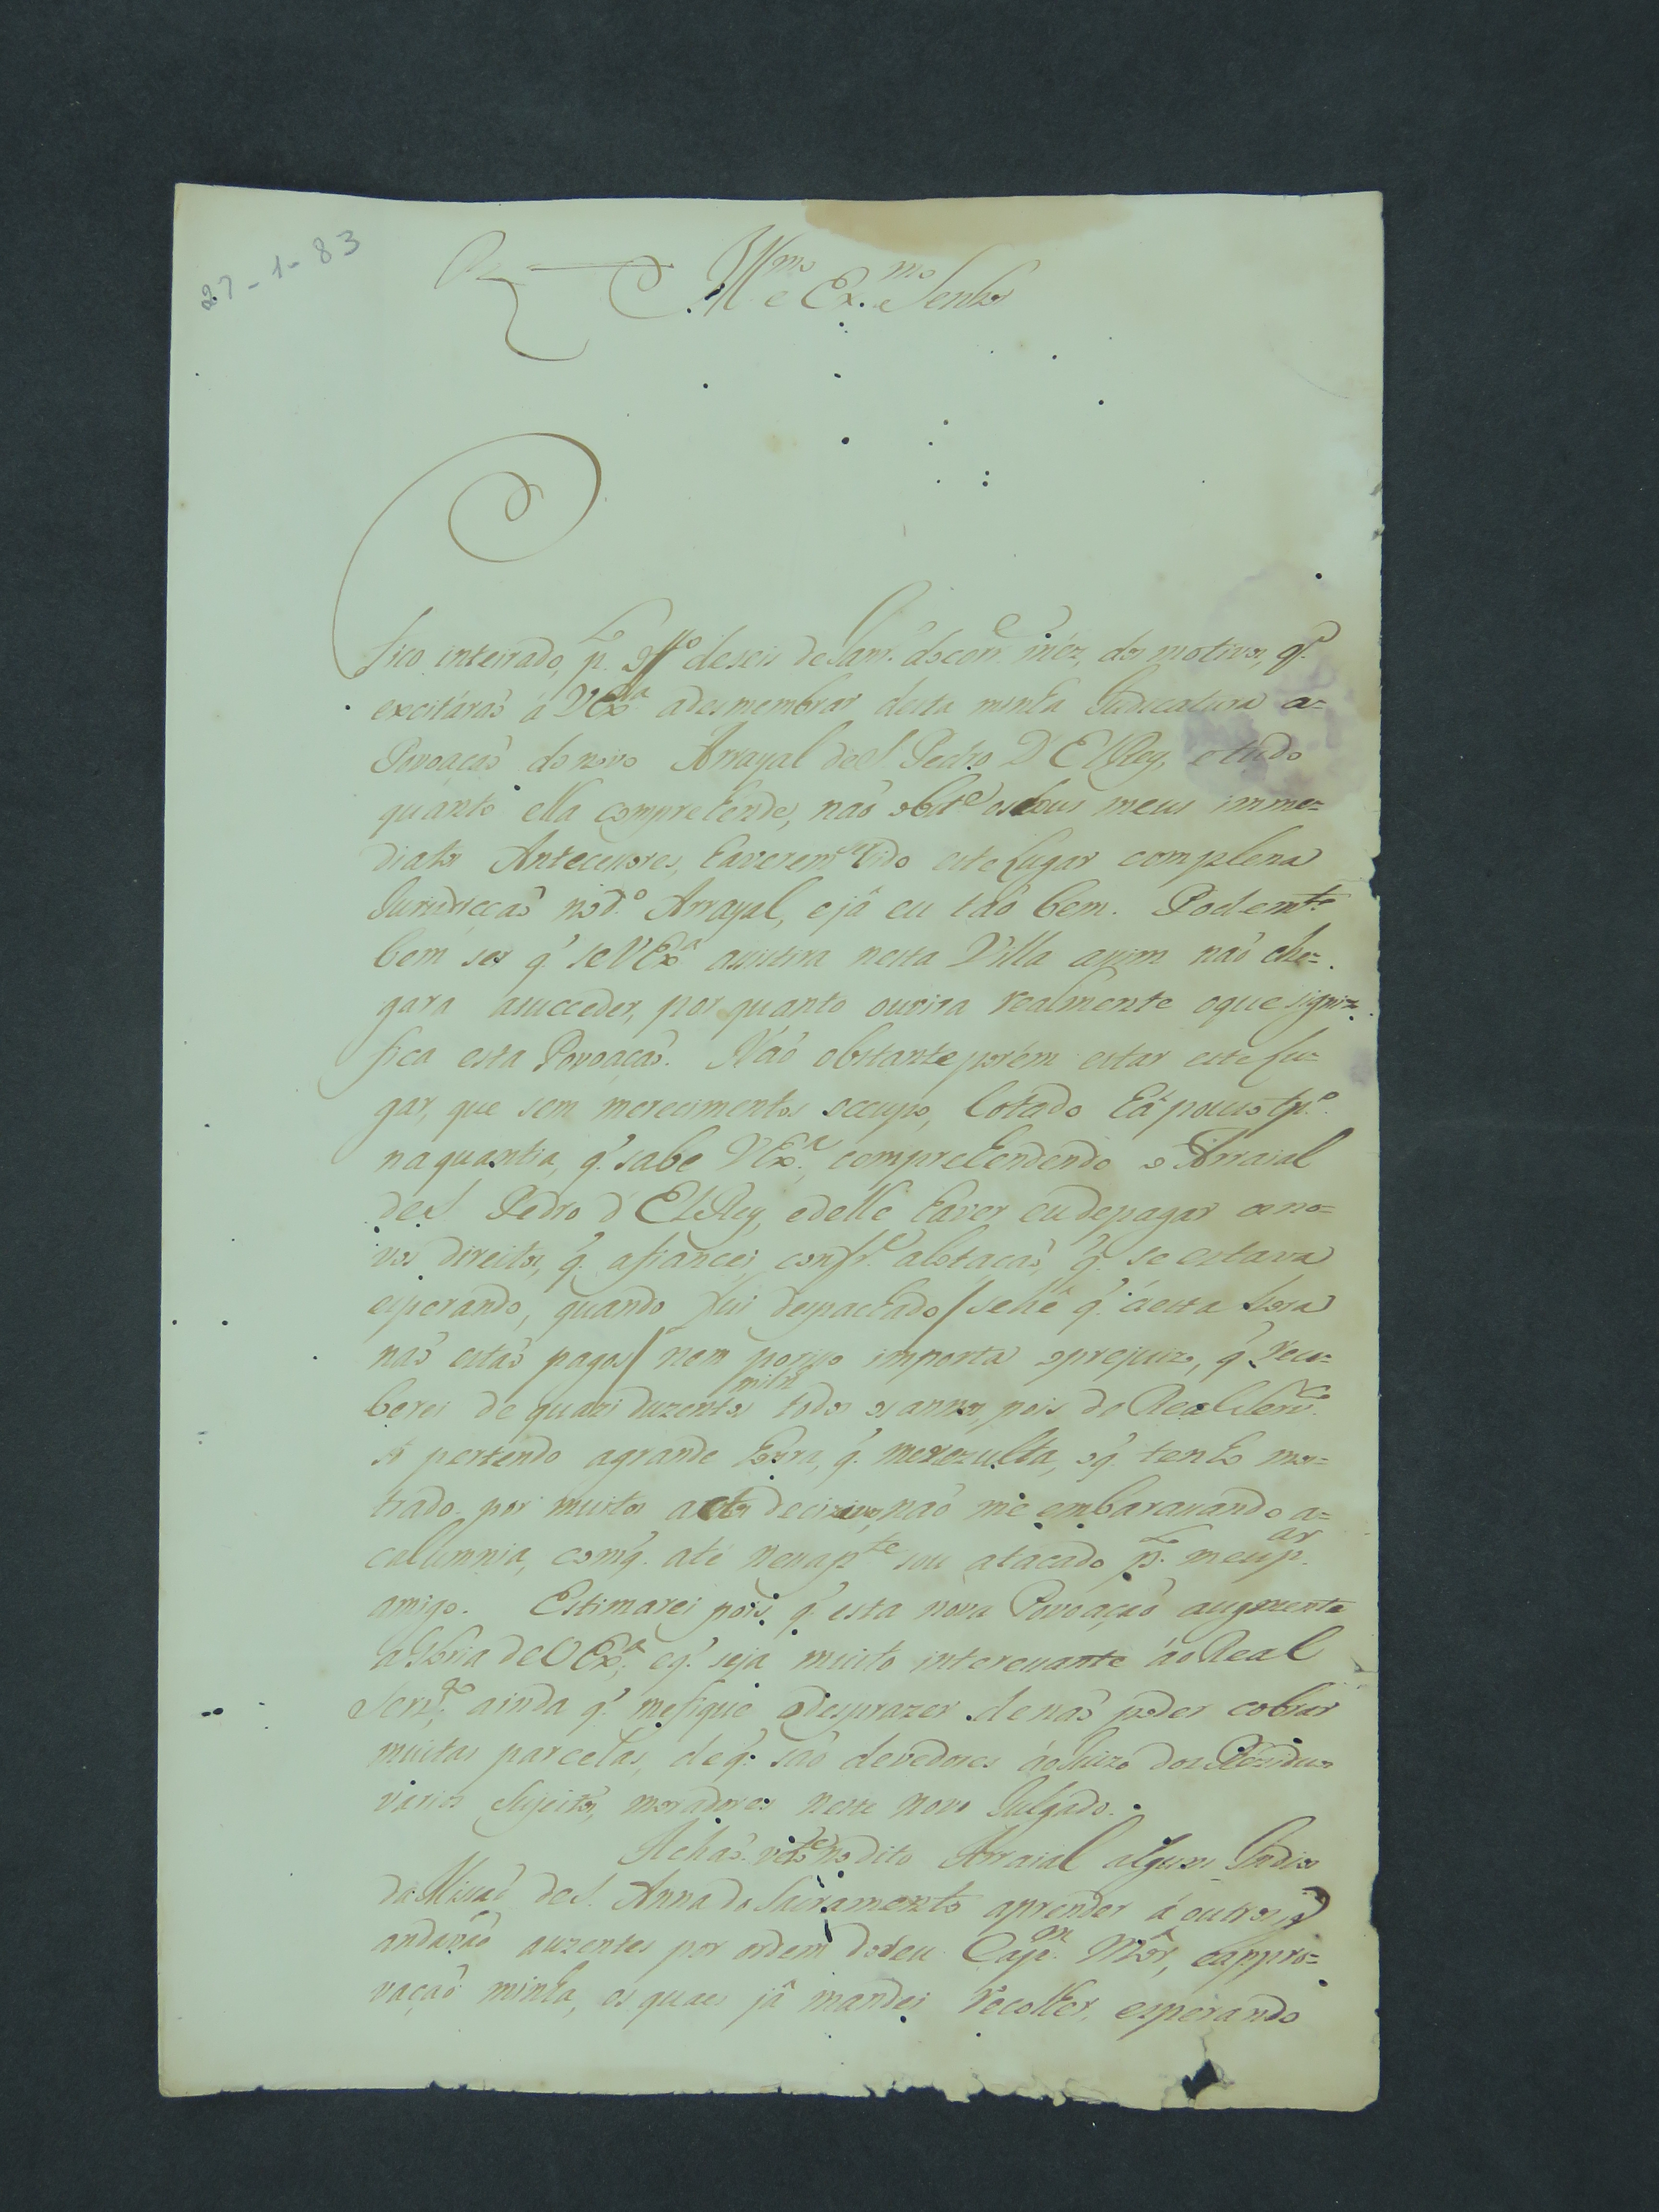 27-1-83
Ill.mo e Ex.mo Senhor
Fico inteirado, p.lo off.o de seis de Jan.ro do corr.e mêz, dos motivos, q.'
excitárão á VEx.a a desmembrar desta minha Judicatura a=
Povoação do novo Arrayal de S. Pedro D'ElRey, e tudo
quanto ella comprehende, não obst.e os dous meus imme=
diatos Antecessores, haverem tido este Lugar com plena
Jurisdicção no d.o Arrayal, e já eu tão bem. Podem.te
bem ser q.' se VEx.a assistira nesta Villa assim não che=
gara a succeder, por quanto ouvira realmente o que signi=
fica esta Povoação. Não obstante porém estar este Lu=
gar, que sem merecimentos occupo, lotado há pouco tp.o
na quantia, q.' sabe VEx.a, comprehendendo o Arraial
de S. Pedro d'ElRey, e delle haver eu de pagar os no=
vos direitos, q.' afiancei, conf.e a lotação, q.' se estava
esperando, quando fui despachado / se hé q.' á esta hora
não estão pagos / nem por isso importa o prejuizo, q.' rece=
berei de quazi duzentos mil r.s todos os annos, pois do Real Serv.o
só pertendo a grande honra, q.' me rezulta, o q.' tenho mos=
trado por muitos actos decizivos, não me embarassando a=
calumnia, com q.' até nessa p.te sou atacado p.lo meu p.ar
amigo. Estimarei pois q.' esta nova Povoação augmente
a gloria de VEx.a, e q.' seja muito interessante ao Real
Serv.ço, ainda q.' me fique o desprazer de não poder cobrar
muitas parcelas, de q.' são devedores ao Juizo dos Reziduos
varios Sujeitos, moradores neste novo Julgado.
Achão-se no dito Arraial alguns Indios
da Missão de S. Anna do Sacramento aprender á outros, q.'
andavão auzentes por ordem do seu Cap.m Mór, e appro=
vação minha, os quaes já mandei recolher, esperando